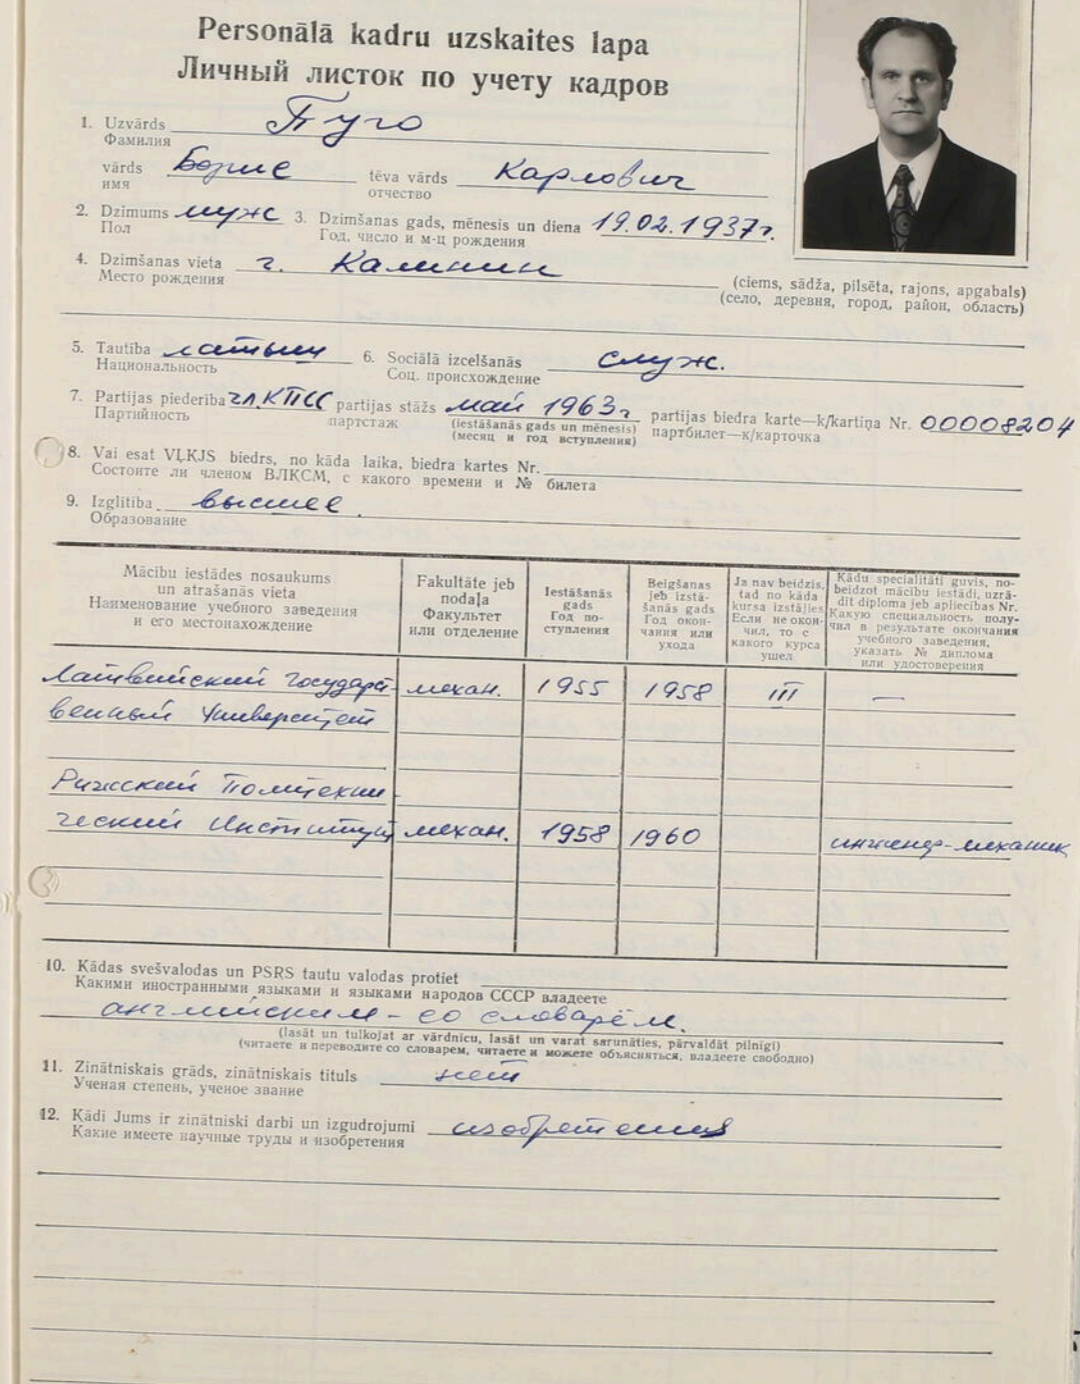 Personālā kadru uzskaites lapa
Личный листок по учету кадров
1. Uzvārds Пуго
Фамилия
vārds Борис tēva vārds Карлович
имя отчество
2. Dzimums муж 3. Dzimšanas gads, mēnesis un diena 19.02.1937г.
Пол Год, число и м-ц рождения
4. Dzimšanas vieta г. Калинин
Место рождения
(ciems, sādža, pilsēta, rajons, apgabals)
(село, деревня, город, район, область)
5. Tautība латыш 6. Sociālā izcelšanās служ.
Национальность Соц. происхождение
7. Partijas piederība чл.КПСС partijas stāžs май 1963г partijas biedra karte—k/kartiņa Nr. 00008204
Партийность партстаж (iestāšanās gads un mēnesis) партбилет—к/карточка
(месяц и год вступления)
8. Vai esat VĻKJS biedrs, no kāda laika, biedra kartes Nr.
Состоите ли членом ВЛКСМ, с какого времени и № билета
9. Izglītība высшее.
Образование
Mācību iestādes nosaukums
un atrašanās vieta
Наименование учебного заведения
и его местонахождение
Fakultāte jeb
nodaļa
Факультет
или отделение
Iestāšanās
gads
Год по-
ступления
Beigšanas
jeb izstā-
šanās gads
Год окон-
чания или
ухода
Ja nav beidzis,
tad no kāda
kursa izstājies
Если не окон-
чил, то с
какого курса
ушел
Kādu specialitāti guvis, no-
beidzot mācību iestādi, uzrā-
dīt diploma jeb apliecības Nr.
Какую специальность полу-
чил в результате окончания
учебного заведения,
указать № диплома
или удостоверения
Латвийский Государст- механ. 1955 1958 III —
венный Университет
Рижский Политехни-
ческий Институт механ. 1958 1960 инженер-механик
10. Kādas svešvalodas un PSRS tautu valodas protiet
Какими иностранными языками и языками народов СССР владеете
английским - со словарём.
(lasāt un tulkojat ar vārdnīcu, lasāt un varat sarunāties, pārvaldāt pilnīgi)
(читаете и переводите со словарем, читаете и можете объясняться, владеете свободно)
11. Zinātniskais grāds, zinātniskais tituls нет
Ученая степень, ученое звание
12. Kādi Jums ir zinātniski darbi un izgudrojumi изобретения
Какие имеете научные труды и изобретения